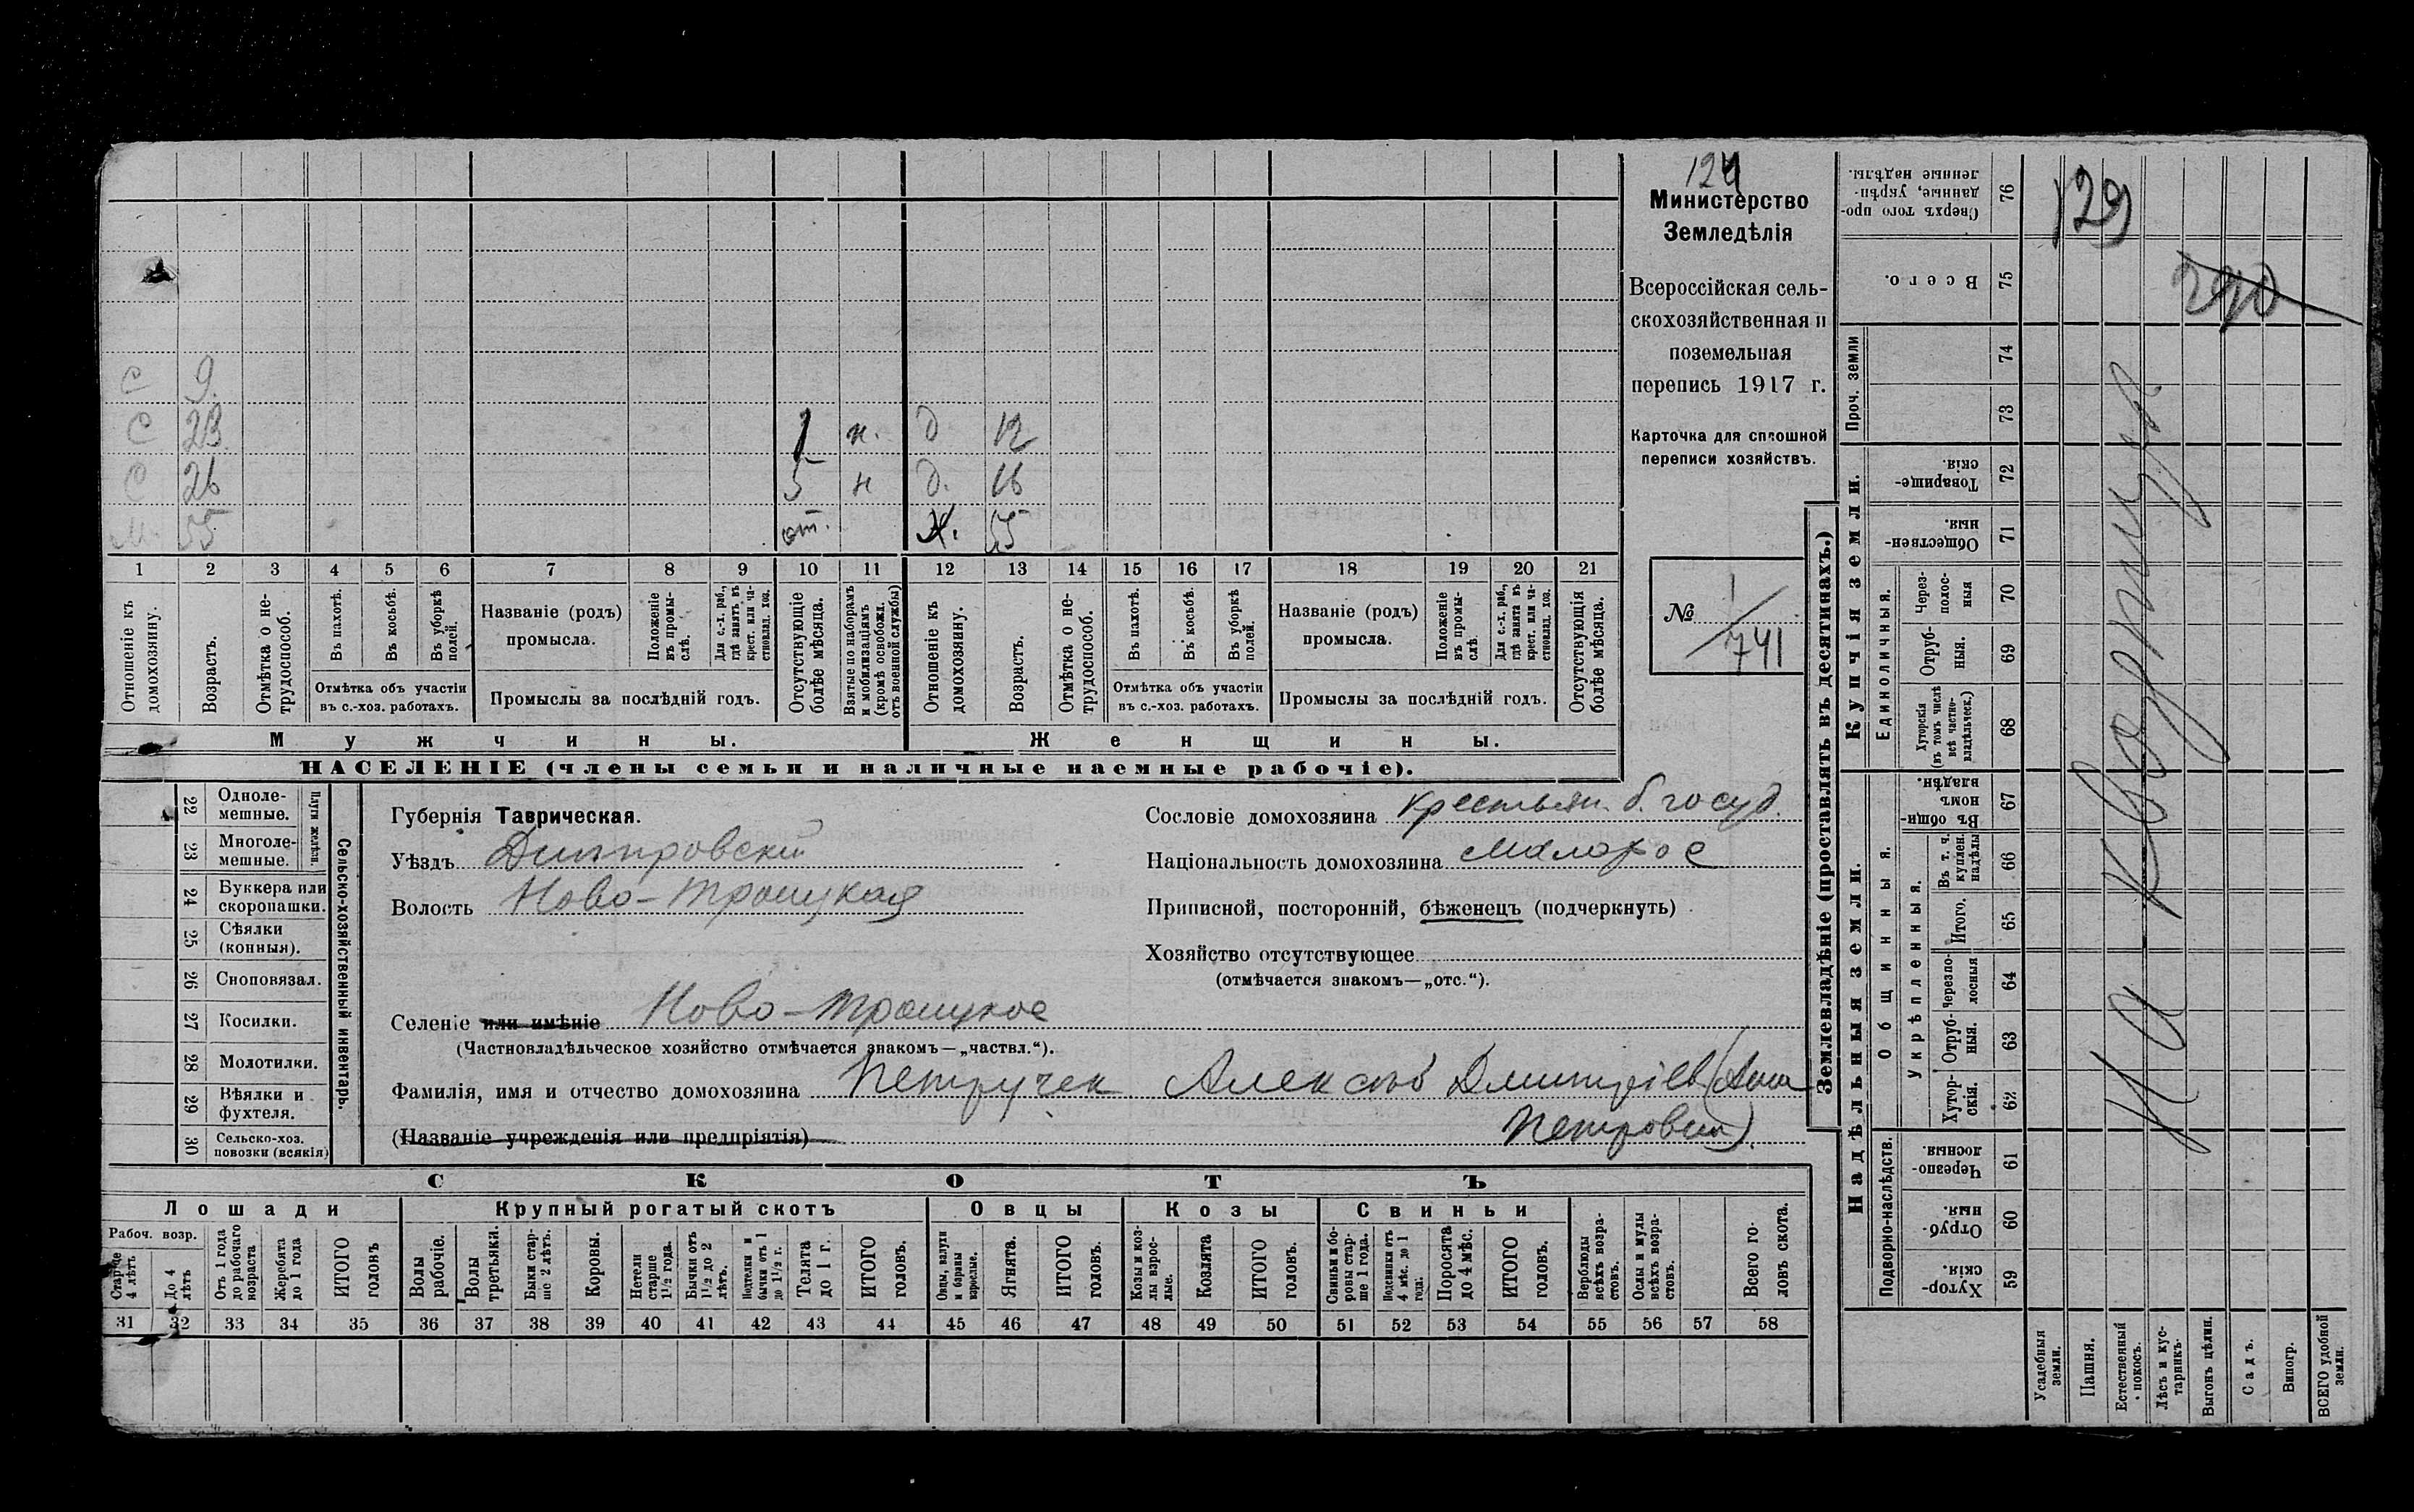 124
Министерство
Земледѣлія
Всероссійская сель-
скохозяйственная и
поземельная
перепись 1917 г.
Карточка для сплошной
переписи хозяйствъ.
№ 1/741
С 9.
С 23. н. д 12
С 26 5 н д. 16
М. 55 от. Ж.
1 2 3 4 5 6 7 8 9 10 11 12 13 14 15 16 17 18 19 20 21
Отношеніе къ домохозяину.
Возрастъ.
Отмѣтка о не-трудоспособ.
Въ пахотѣ.
Въ косьбѣ.
Въ уборкѣ полей.
Отмѣтка объ участіи
въ с.-хоз. работахъ.
Названіе (родъ)
промысла.
Положеніе въ промы-слѣ.
Для с.-х. раб., гдѣ занятъ въ крест. или ча-стновлад. хоз.
Промыслы за послѣдній годъ.
Отсутствующіе болѣе мѣсяца.
Взятые по наборамъ и мобилизаціямъ (кромѣ освобожд. отъ военной службы)
Отношеніе къ домохозяину.
Возрастъ.
Отмѣтка о не-трудоспособ.
Въ пахотѣ.
Въ косьбѣ.
Въ уборкѣ полей.
Отмѣтка объ участіи
въ с.-хоз. работахъ.
Названіе (родъ)
промысла.
Положеніе въ промы-слѣ
Для с.-х. раб., гдѣ занята въ крест. или ча-стновлад. хоз.
Промыслы за послѣдній годъ.
Отсутствующія болѣе мѣсяца.
Мужчины.
Женщины.
НАСЕЛЕНІЕ (члены семьи и наличные наемные рабочіе).
22 Одноле-мешные.
23 Многоле-мешные.
Плуги желѣзн.
24 Буккера или скоропашки.
25 Сѣялки (конныя).
26 Сноповязал.
27 Косилки.
28 Молотилки.
29 Вѣялки и фухтеля.
30 Сельско-хоз. повозки (всякія)
Сельско-хозяйственный инвентарь.
Губернія Таврическая.
Уѣздъ Днѣпровский
Волость Ново-Троицкая
Сословіе домохозяина крестьян. б. госуд.
Національность домохозяина Малорос
Приписной, посторонній, бѣженецъ (подчеркнуть)
Хозяйство отсутствующее
(отмѣчается знакомъ—„отс.“).
Селеніе или имѣніе Ново-Троицкое
(Частновладѣльческое хозяйство отмѣчается знакомъ—„частвл.“).
Фамилія, имя и отчество домохозяина Петручек Алексѣй Дмитріев (Анна
(Названіе учрежденія или предпріятія) Петровна).
СКОТЪ
Лошади
Крупный рогатый скотъ
Овцы
Козы
Свиньи
Рабоч. возр.
Старше 4 лѣтъ
До 4 лѣтъ
Отъ 1 года до рабочаго возраста
Жеребята до 1 года
ИТОГО головъ
Волы рабочіе.
Волы третьяки.
Быки стар-ше 2 лѣтъ.
Коровы.
Нетели старше 1½ года.
Бычки отъ 1½ до 2 лѣтъ.
Подтелки и бычки отъ 1 до 1½ г.
Телята до 1 г.
ИТОГО головъ.
Овцы, валухи и бараны взрослые.
Ягнята.
ИТОГО головъ.
Козы и коз-лы взрос-лые.
Козлята
ИТОГО головъ.
Свиньи и бо-ровы стар-ше 1 года.
Подсвинки отъ 4 мѣс. до 1 года.
Поросята до 4 мѣс.
ИТОГО головъ.
Верблюды всѣхъ возра-стовъ.
Ослы и мулы всѣхъ возра-стовъ.
Всего го-ловъ скота.
31 32 33 34 35 36 37 38 39 40 41 42 43 44 45 46 47 48 49 50 51 52 53 54 55 56 57 58
Землевладѣніе (проставлять въ десятинахъ.)
Купчія земли.
Надѣльныя земли.
76 Сверхъ того про-данные, укрѣп-ленные надѣлы.
75 Всего.
Проч. земли
74
73
72 Товарище-скія.
71 Обществен-ныя.
Единоличныя.
70 Через-полос-ныя
69 Отруб-ныя.
68 Хуторскія (въ томъ числѣ всѣ частно-владѣльческ.)
Общинныя.
67 Въ общин-номъ владѣн.
Укрѣпленныя.
66 Въ т. ч. куплен. надѣлы
65 Итого.
64 Черезпо-лосныя
63 Отруб-ныя.
62 Хутор-скія.
Подворно-наслѣдств.
61 Черезпо-лосныя.
60 Отруб-ныя.
59 Хутор-скія.
Усадебныя земли.
Пашня.
Естественный покосъ.
Лѣсъ и кус-тарникъ.
Выгонъ цѣлин.
Садъ.
Виногр.
ВСЕГО удобной земли.
129
290
на квартире